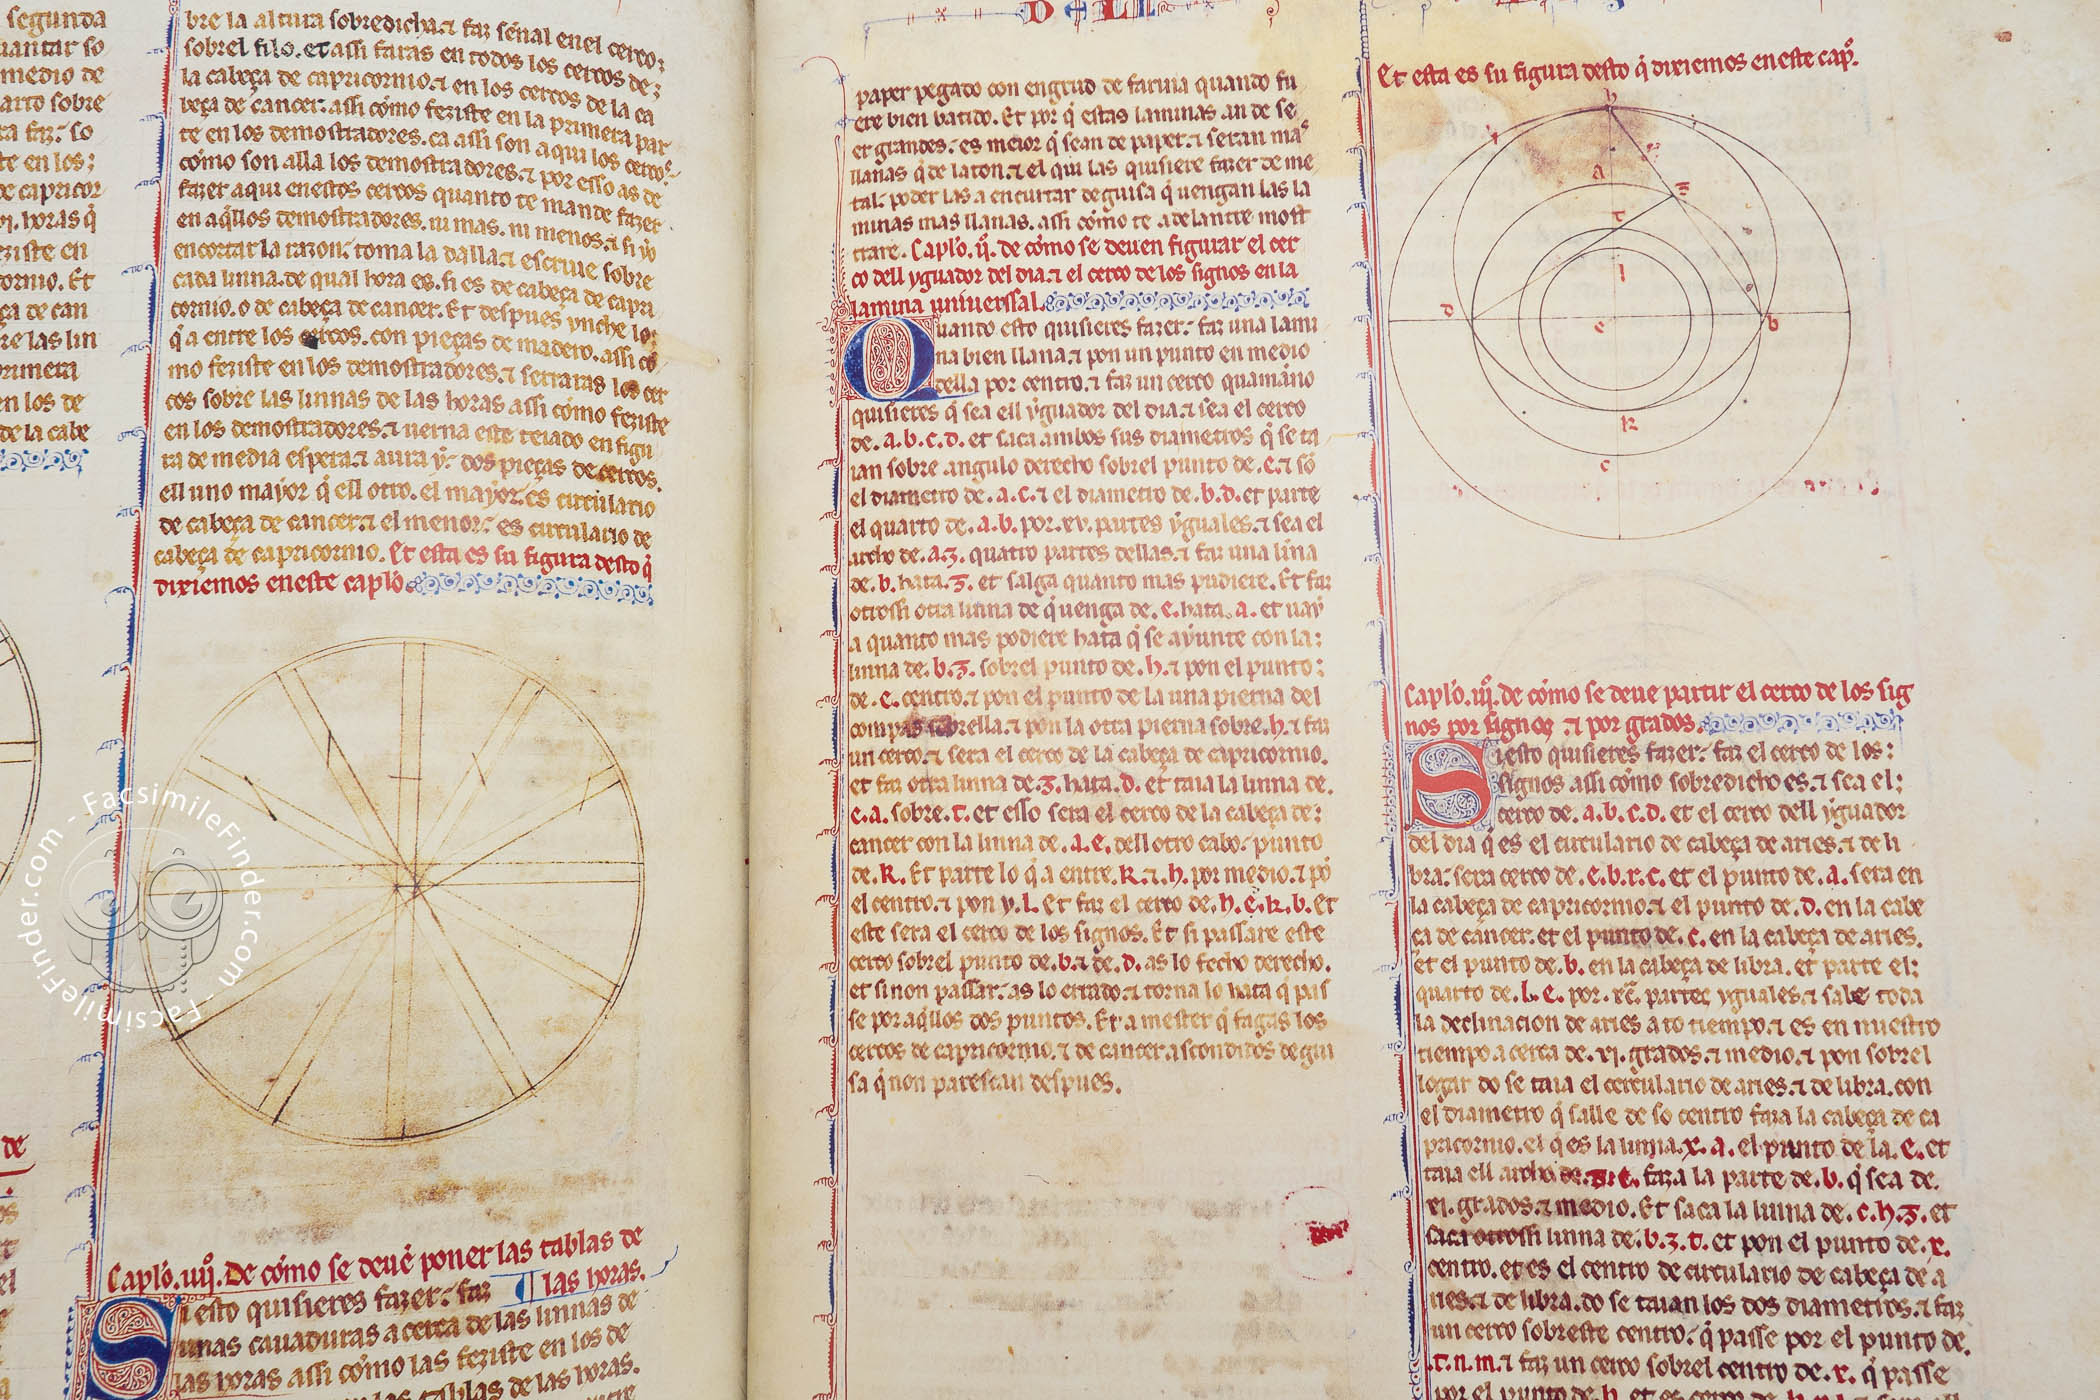 segunda
uantar so
medio de
arto sobre
ra faz. so
te en los;
de capricor
vj. horas q̃
eziste en
cornio. Et
ça de can
re las lin
primera
en los de
de la cabe
de
bre la altura sobredicha. ⁊ faz sen̄al en el cerco;
sobrel filo. et assi faras en todos los cercos de;
la cabeça de capricornio. ⁊ en los cercos de la ca
beça de cancer. assi cómo feziste en la primera par
te en los demostradores. ca assi son aqui los cercos.
cómo son alla los demostradores. ⁊ por esso as de
fazer aqui en estos cercos quanto te mande fazer
en aq̃llos demostradores. ni mas. ni menos. ⁊ si q̃
en cortar la razon. toma la dalla. ⁊ escriue sobre
cada linna. de qual hora es. si es de cabeça de capri
cornio. o de cabeça de cancer. Et despues ynche lo;
q̃ a entre los cercos. con pieças de madero. assi có
mo feziste en los demostradores. ⁊ serraras los cer
cos sobre las linnas de las horas assi cómo feziste
en los demostradores. ⁊ uerna este teiado en figu
ra de media espera. ⁊ aura y. dos pieças de cercos.
ell uno mayor q̃ ell otro. el mayor. es circulario
de cabeça de cancer. ⁊ el menor. es circulario de
cabeça de capricornio. Et esta es su figura desto q̃
dixiemos en este caplo.
Caplo. iiijº. De cómo se deue poner las tablas de
las horas.
Si esto quisieres fazer. faz
unas cauaduras a cerca de las linnas de
las horas assi cómo las feziste en los de
las tablas de las horas.
DEL
paper pegado con engrud de farina quando fu
ere bien batido. Et por q̃ estas laminas an de se
er grandes. es meior q̃ sean de paper. ⁊ seran mas
llanas q̃ de laton. ⁊ el qui las quisiere fazer de me
tal. poder las a encurtar de guisa q̃ uengan las la
minas mas llanas. assi cómo te adelantre most
trare. Caplo. ijº. de cómo se deuen figurar el cer
co dell yguador del dia. ⁊ el cerco de los signos en la
lamina uniuerssal.
Quando esto quisieres fazer. faz una lami
na bien llana. ⁊ pon un punto en medio
della por centro. ⁊ faz un cerco quamano
quisieres q̃ sea ell yguador del dia. ⁊ sea el cerco
de. a.b.c.d. et saca ambos sus diametros q̃ se ta
ian sobre angulo derecho sobrel punto de. e. ⁊ só
el diametro de. a.c. ⁊ el diametro de. b.d. et parte
el quarto de. a.b. por. xv. partes yguales. ⁊ sea el
archo de. a.z. quatro partes dellas. ⁊ faz una linna
de. b. hata. z. et salga quanto mas pudiere. Et faz
otrossi otra linna de q̃ uenga de. e. hata. a. et uay
a quanto mas podiere hata q̃ se ayunte con la;
linna de. b.z. sobrel punto de. h. ⁊ pon el punto;
de. e. centro. ⁊ pon el punto de la una pierna del
compas sobrella. ⁊ pon la otra pierna sobre. h. ⁊ faz
un cerco. ⁊ sera el cerco de la cabeça de capricornio.
et faz otra linna de. z. hata. d. et taia la linna de.
e.a. sobre. t. et esso sera el cerco de la cabeça de;
cancer con la linna de. a.e. dell otro cabo. punto
de. K. Et parte lo q̃ a entre. K. ⁊. h. por medio. ⁊ pó
el centro. ⁊ pon y. l. Et faz el cerco de. h.e.k.b. Et
este sera el cerco de los signos. Et si passare este
cerco sobrel punto de. b. ⁊ de. d. as lo fecho derecho.
et si non passar. as lo errado. ⁊ torna lo hata q̃ pas
se por aq̃llos dos puntos. Et a mester q̃ fagas los
cercos de capricornio. ⁊ de cancer. ascondidos de gui
sa q̃ non parescan despues.
Et esta es su figura desto q̃ dixiemos en este capº.
h
z
a
t
l
d
e
b
k
c
Caplo. iijº. de cómo se deue partir el cerco de los sig
nos por signos ⁊ por grados.
Si esto quisieres fazer. faz el cerco de los;
signos assi cómo sobredicho es. ⁊ sea el;
cerco de. a.b.c.d. et el cerco dell yguador
del dia q̃ es el circulario de cabeça de aries. ⁊ de li
bra. sera cerco de. e.b.r.c. et el punto de. a. sera en
la cabeça de capricornio. ⁊ el punto de. d. en la cabe
ça de cancer. et el punto de. c. en la cabeça de aries.
et el punto de. b. en la cabeça de libra. et parte el;
quarto de. l.e. por. xc. partes yguales. ⁊ sabe toda
la declinacion de aries a to tiempo. ⁊ es en nuestro
tiempo a cerca de. xj. grados. ⁊ medio. ⁊ pon sobrel
logar do se taia el cerculario de aries. ⁊ de libra. con
el diametro q̃ salle de so centro faza la cabeça de ca
pricornio. el q̃ es la linna. x.a. el punto de la. e. et
taia ell archo de. z.e. faza la parte de. b. q̃ sea de.
xj. grados. ⁊ medio. Et saca la linna de. c.h.z. et
saca otrossi linna de. b.z.t. et pon el punto de. x.
centro. et es el centro de circulario de cabeça de a
ries. ⁊ de libra. do se taian los dos diametros. ⁊ faz
un cerco sobreste centro. q̃ passe por el punto de.
.t.n.m. ⁊ faz un cerco sobrel centro de. x. q̃ passe
por el punto de. h. et es cerco de
Facsimilefinder.com - Facsimilefinder.com - Facsimilefinder.com